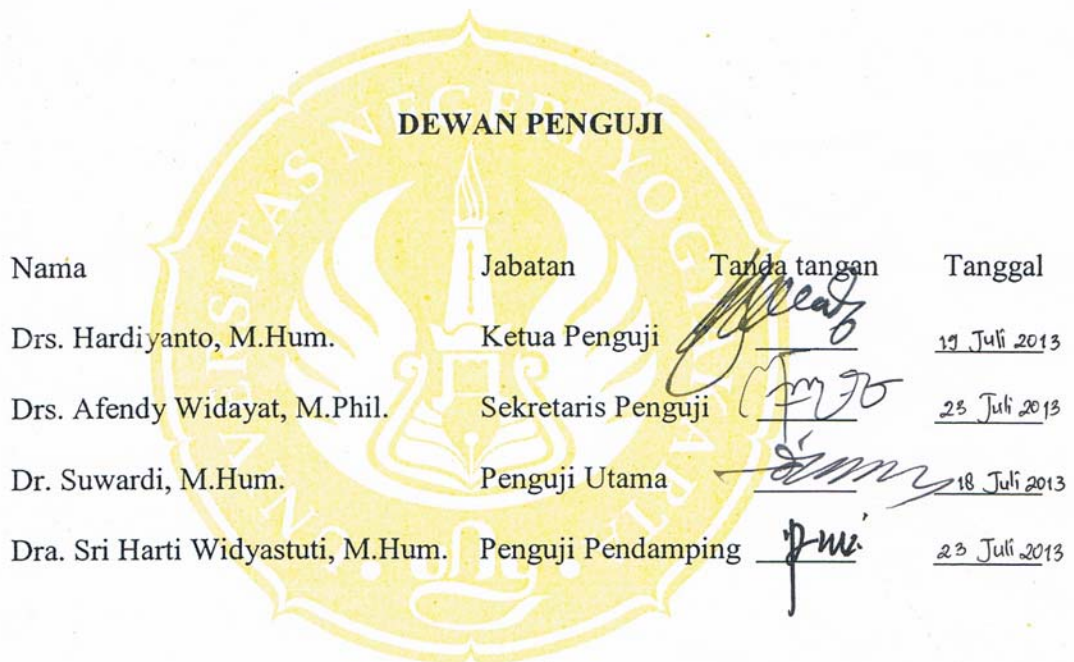 UNIVERSITAS NEGERI YOGYAKARTA
DEWAN PENGUJI
Nama Jabatan Tanda tangan Tanggal
Drs. Hardiyanto, M.Hum. Ketua Penguji 19 Juli 2013
Drs. Afendy Widayat, M.Phil. Sekretaris Penguji 23 Juli 2013
Dr. Suwardi, M.Hum. Penguji Utama 18 Juli 2013
Dra. Sri Harti Widyastuti, M.Hum. Penguji Pendamping 23 Juli 2013